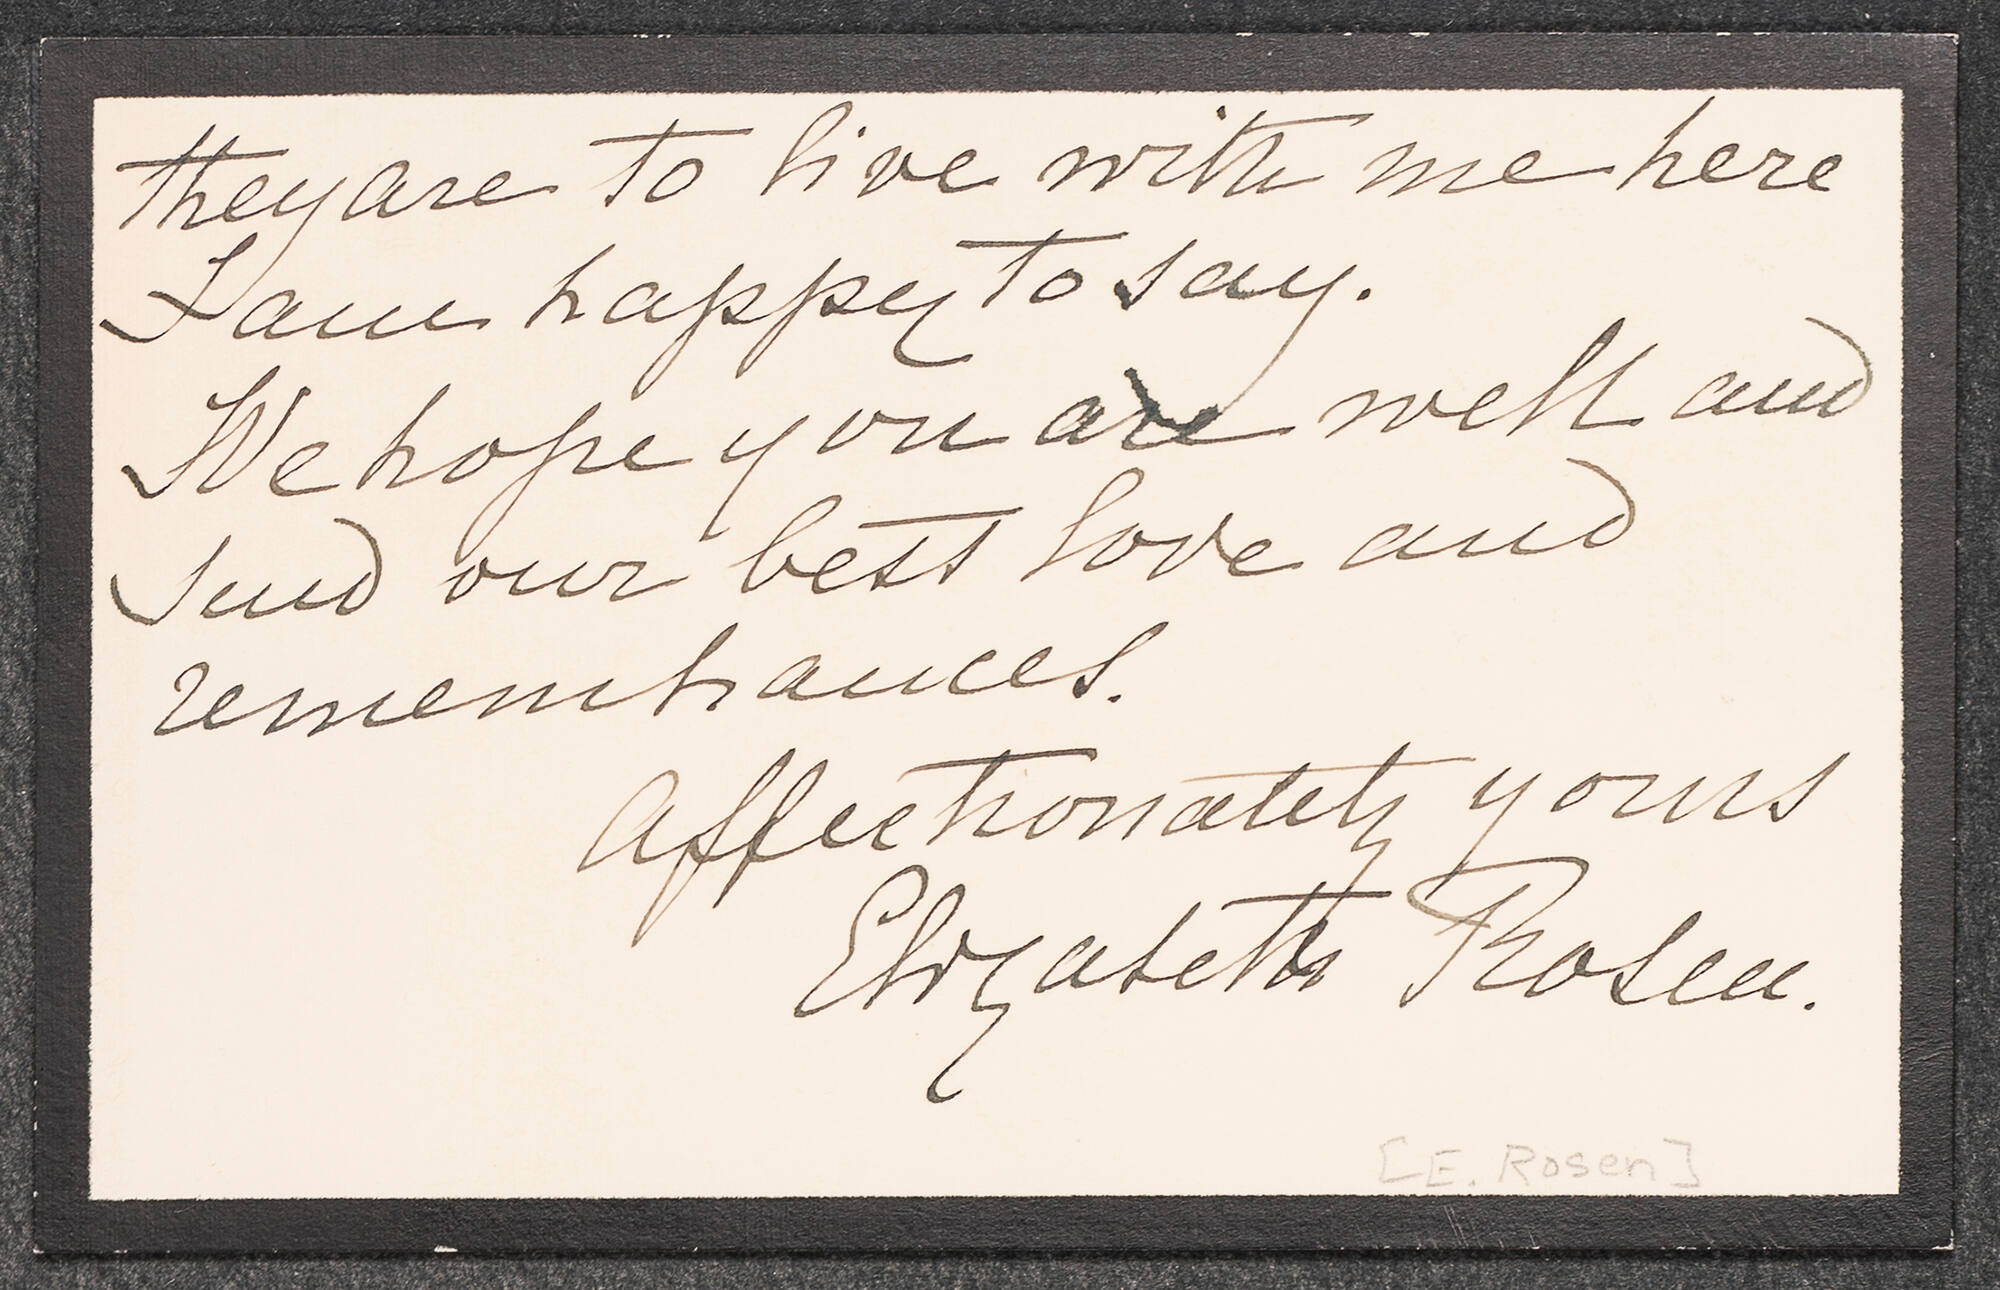 they are to live with me here
I am happy to say.
We hope you are well and
send our best love and
remembrances.
Affectionately yours
Elizabeth Rosen.
[E. Rosen]